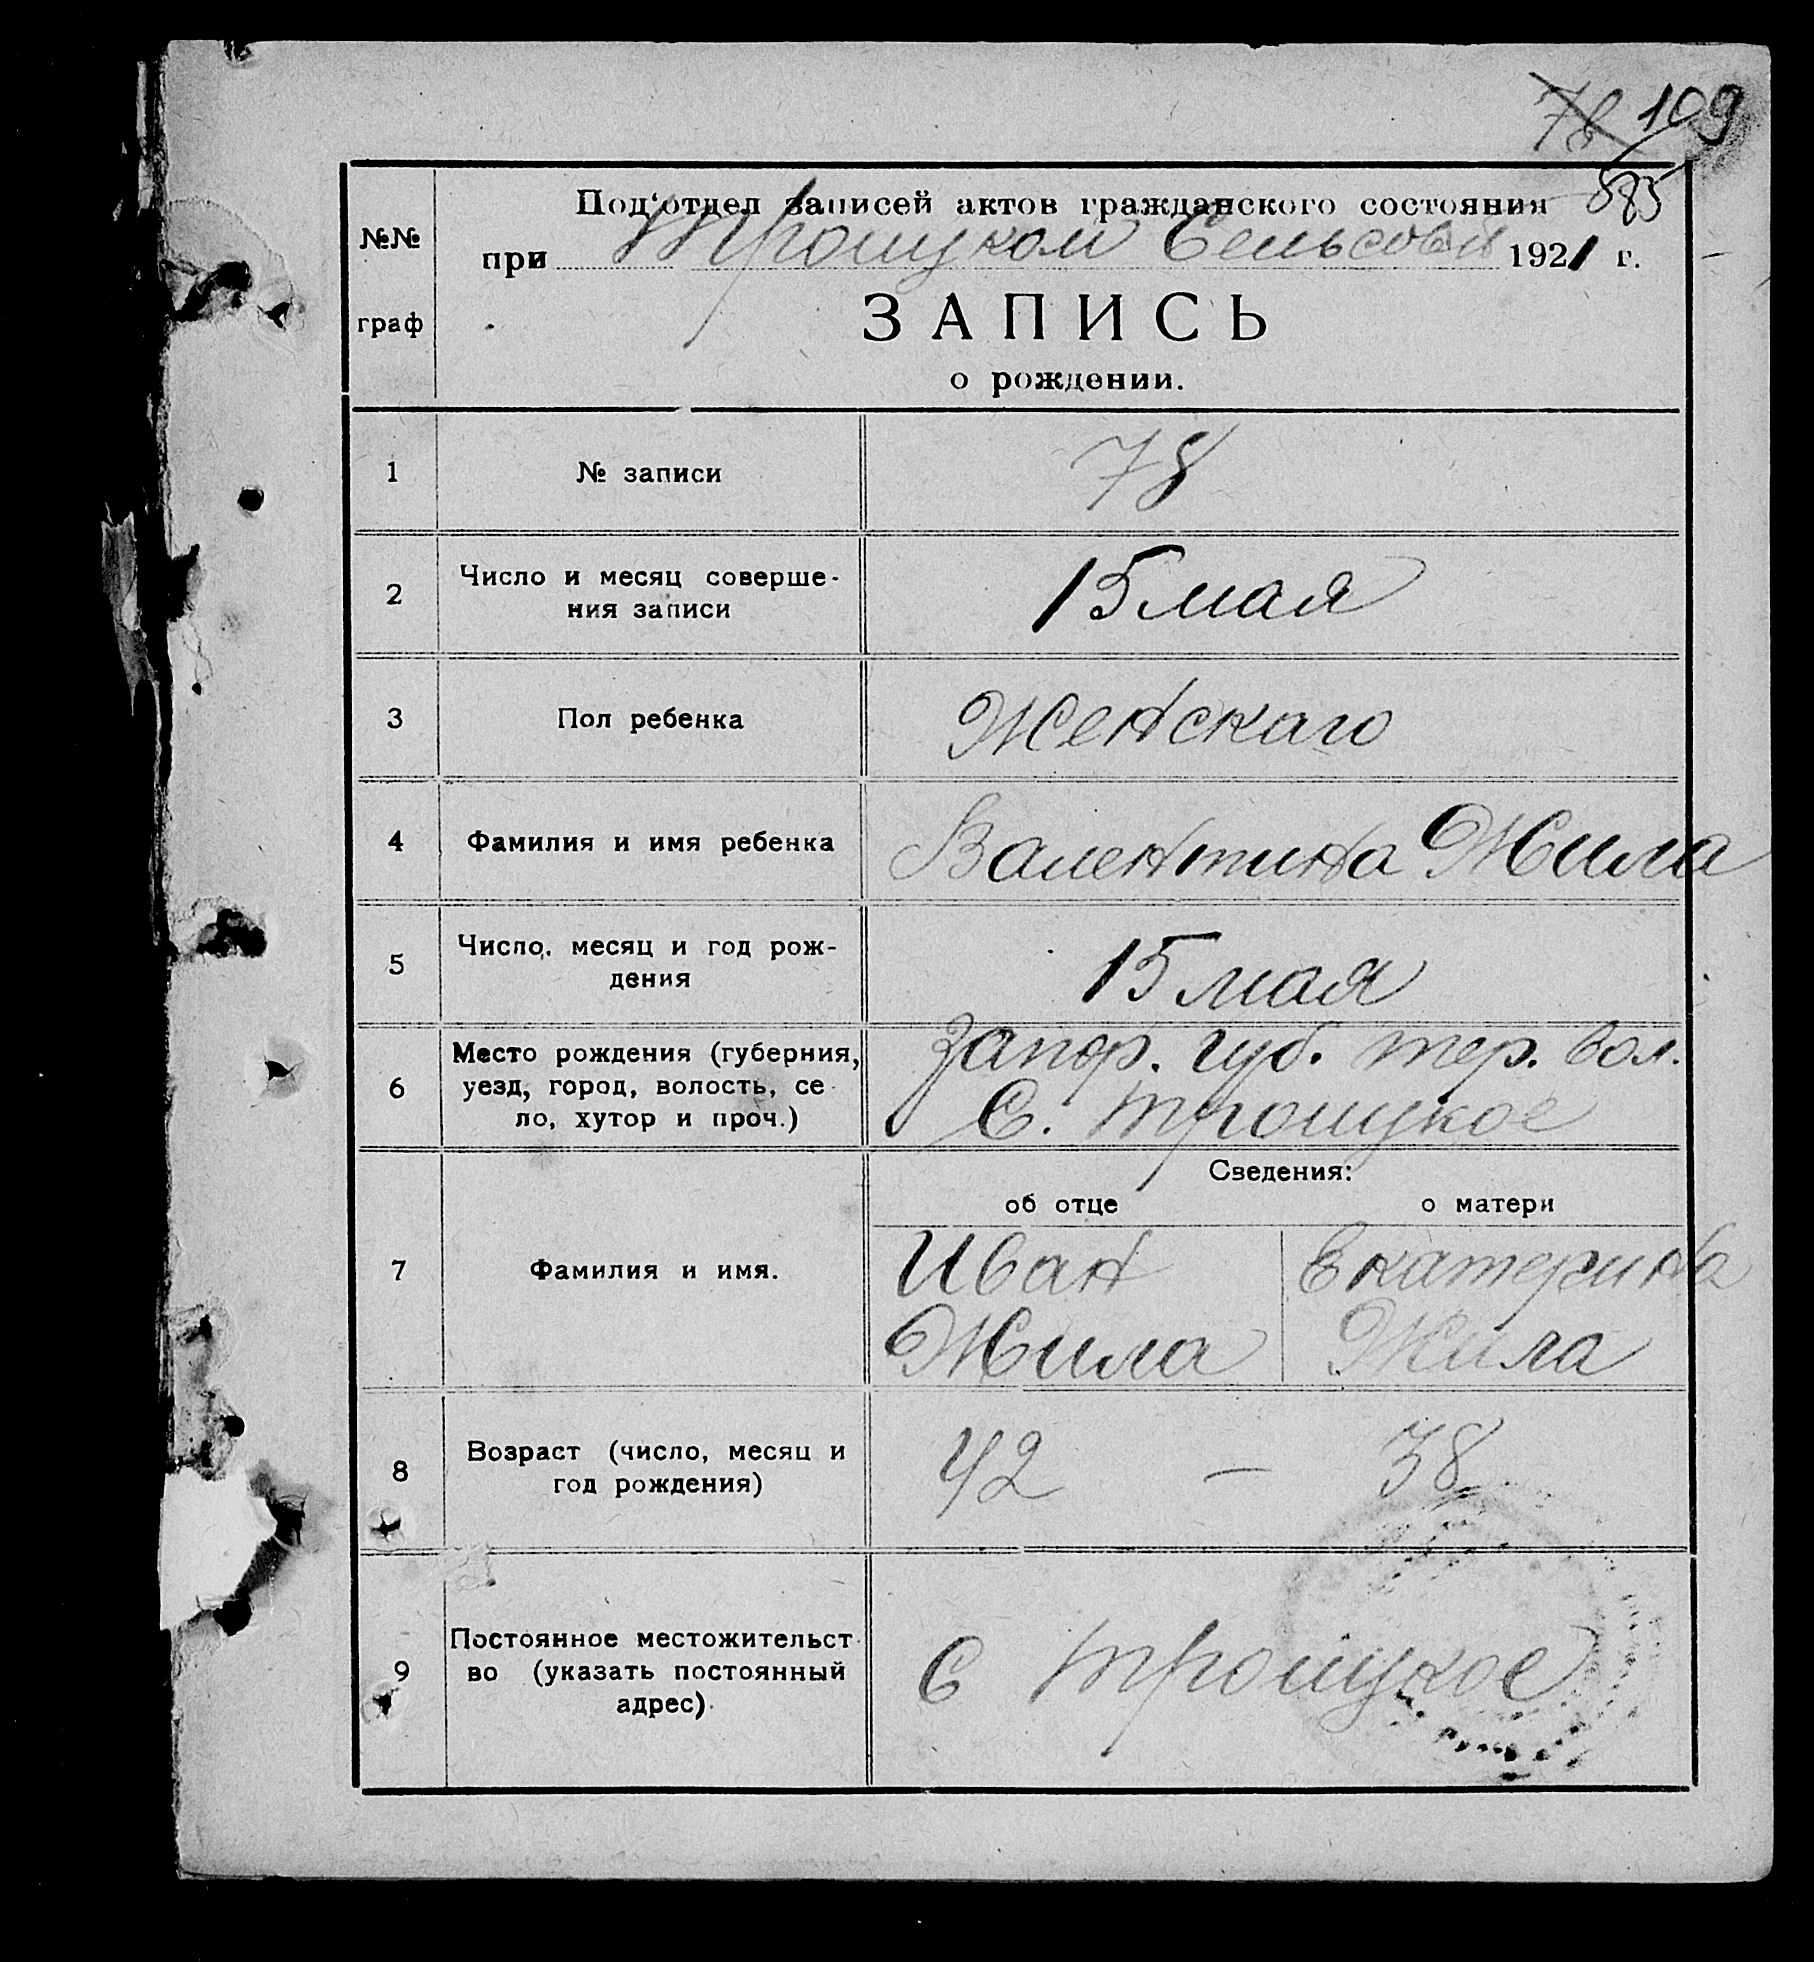 78 109
885
Под‘отдел записей актов гражданского состояния
№№
при Троицком Сельсовете 1921 г.
граф
ЗАПИСЬ
о рождении.
1 № записи 78
2 Число и месяц соверше-
ния записи
15 мая
3 Пол ребенка Женскаго
4 Фамилия и имя ребенка Валентина Жила
5 Число, месяц и год рож-
дения
15 мая
6 Место рождения (губерния,
уезд, город, волость, се
ло, хутор и проч.)
Запор. губ. тер. вол.
С. Троицкое
Сведения:
об отце о матери
7 Фамилия и имя. Иван Екатерина
Жила Жила
8 Возраст (число, месяц и
год рождения)
42 — 38
9 Постоянное местожительст
во (указать постоянный
адрес)
С Троицкое